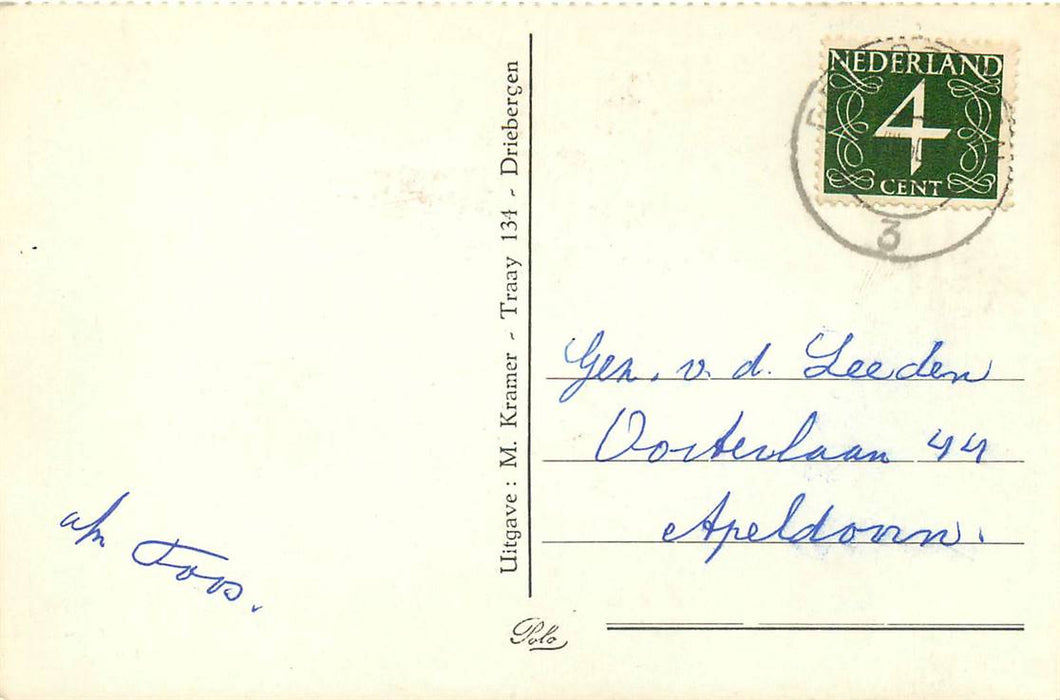 afz. Foos.
Uitgave: M. Kramer - Traay 134 - Driebergen
Polo
NEDERLAND
4
CENT
3
Gen. v. d. Leeden
Oosterlaan 44
Apeldoorn.